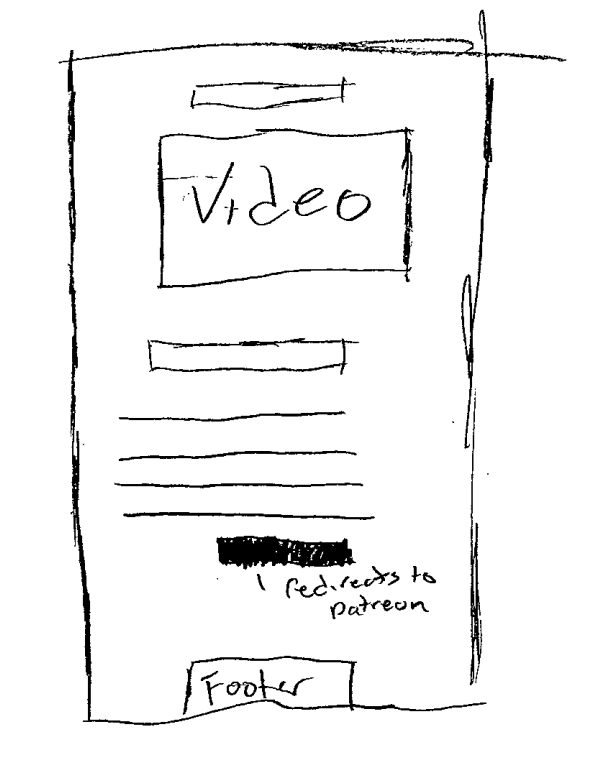 Video
redirects to
patreon
Footer